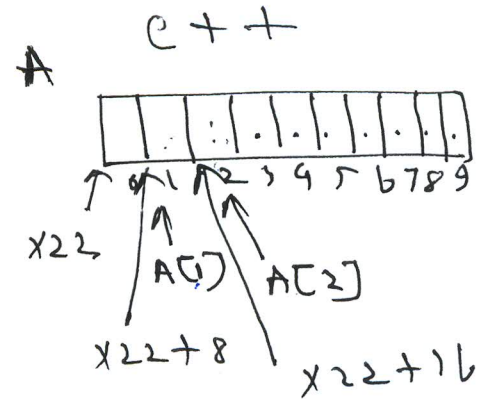 C++
A
0 1 2 3 4 5 6 7 8 9
X22
A[1]
A[2]
X22+8
X22+16